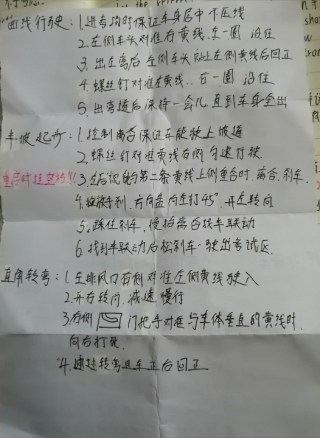 曲线行驶：1.进弯沟时保证车身居中不压线
2.左侧车头对准右黄线.走一圈 没住
3.出左离后 左侧车头对上左侧黄线后回正
4.螺丝钉对准左黄线..右一圈 没住
5.出弯道后保持一会儿直到车身全出
半坡起步：1.控制离合保证车能驶上坡道
2.螺丝钉对准黄线右侧匀速行驶
3.左后视镜的第二条黄线上侧重合时 离合.刹车.
4.拉起手刹.方向盘向左打45°.开左转向
5.踩住刹车.慢抬离合找车联动
6.找到半联动后松刹车.驶出考试区.
直角转弯：1.左排风口右侧对准左侧黄线驶入
2.开右转向.减速慢行
3.右侧 门把手对准与车体垂直的黄线时.
向右打死.
4.速速转弯且车正后回正